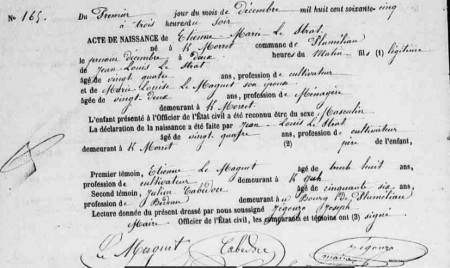 No 165. Du Premier jour du mois de décembre mil huit cent soixante-cinq
à trois heures du soir
ACTE DE NAISSANCE de Etienne Marie Le Strat
né à K Morret commune de Pluméliau
le premier décembre à Deux heures du Matin fils (1) légitime
de Jean Louis Le Strat
âgé de vingt quatre ans, profession de cultivateur
et de Marie Louise Le Maguet son épouse
âgée de vingt Deux ans, profession de Ménagère
demeurant à K Morret
L'enfant présenté à l'Officier de l'État civil a été reconnu être du sexe Masculin
La déclaration de la naissance a été faite par Jean Louis Le Strat
âgé de vingt quatre ans, profession de cultivateur
demeurant à K Morret (2) père de l'enfant
Premier témoin, Etienne Le Maguet âgé de huit ans,
profession de cultivateur demeurant à K
Second témoin, Julien Cabedoce âgé de cinquante six ans,
profession de demeurant au Bourg de Pluméliau
Lecture donnée du présent dressé par nous soussigné Joseph
Maire Officier de l'État civil, les comparants et témoins ont (3) signé
Le Maguet Cabedoce
maire